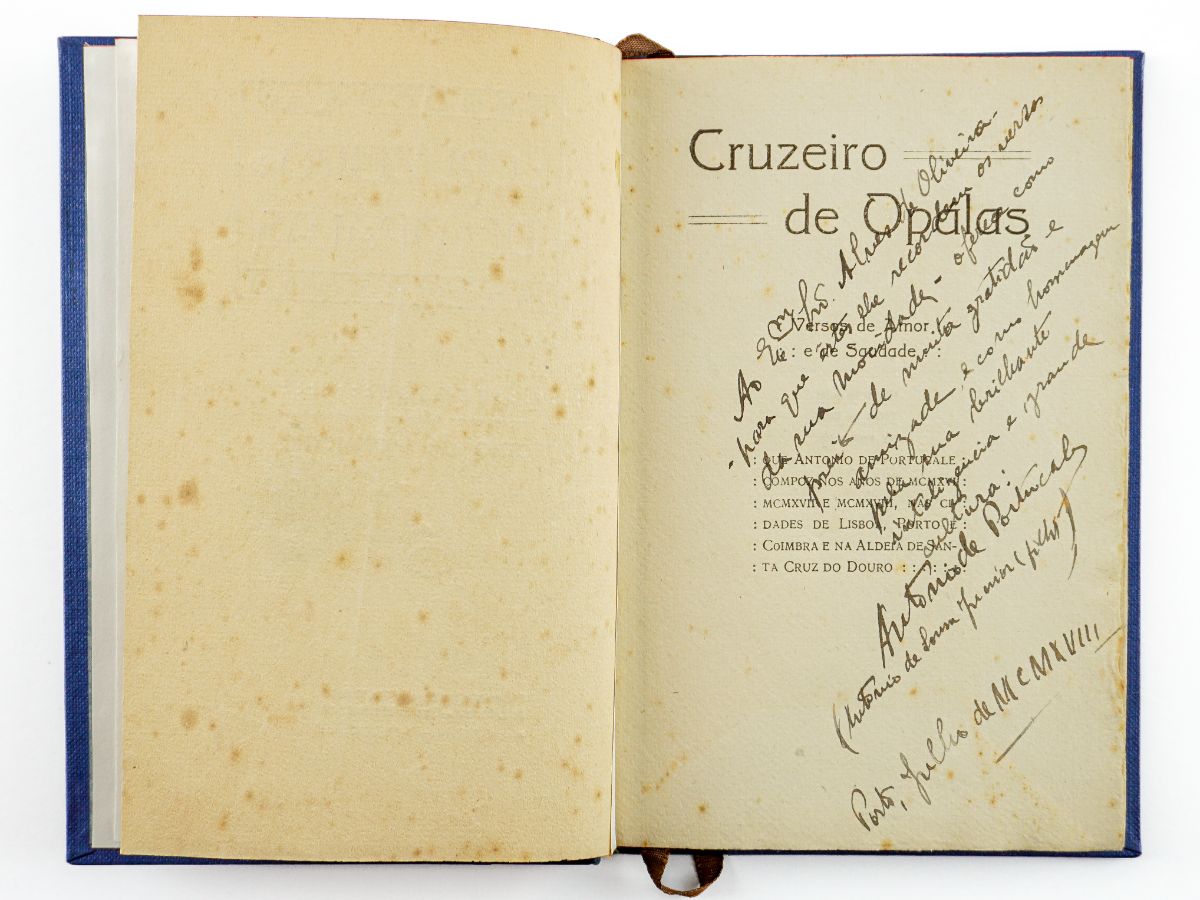 Cruzeiro
de Opalas
Versos de Amor
: e de Saudade :
: que Antonio de Portucale :
: compoz nos anos de mcmxvi :
: mcmxvii e mcmxviii, nas ci- :
: dades de Lisboa, Porto e :
: Coimbra e na Aldeia de San- :
: ta Cruz do Douro : : : : :
Ao Exmo Snr. Alves de Oliveira -
- para que estes lhe recordem os versos
da sua mocidade - oferece como
de muita gratidão e
amizade, e como homenagem
pela sua brilhante
inteligencia e grande
cultura:
António de Portucale
(António de Sousa Junior (filho)
Porto, Julho de MCMXVIII